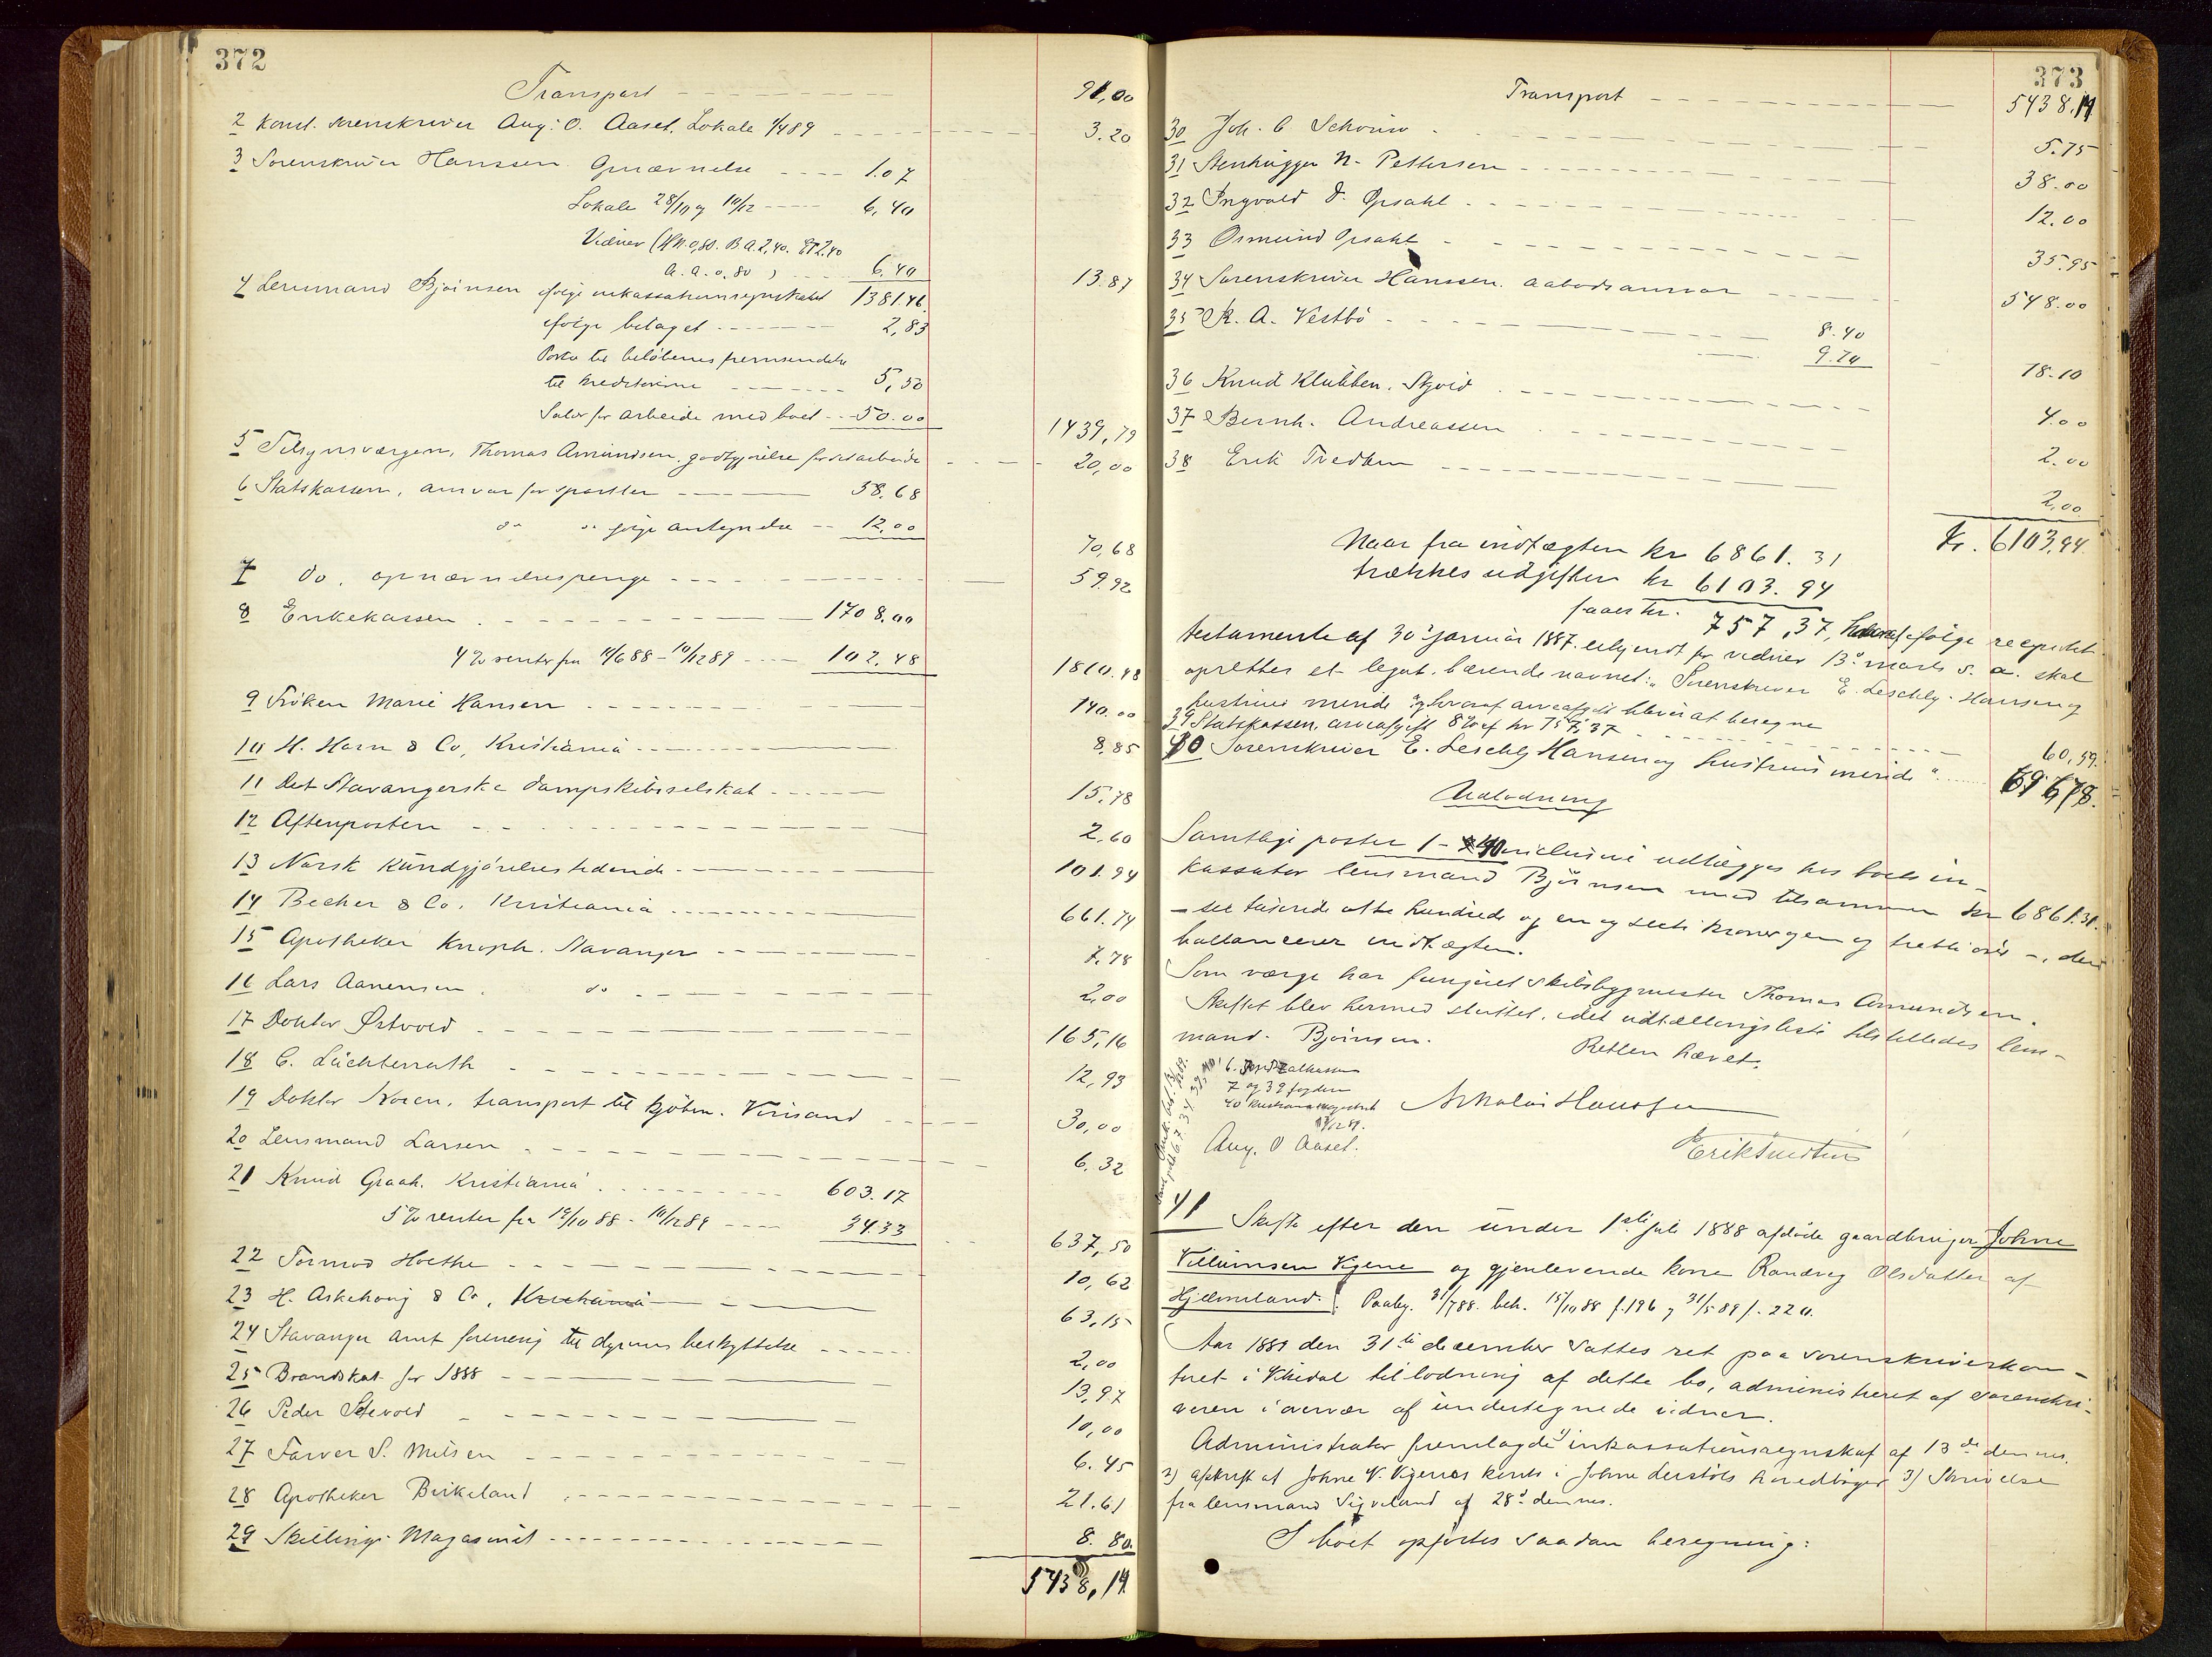 372
Transport 91,00
2 Konst. sorenskriver Aug. O. Aaset. Lokale 1/4 89 3.20
3 Sorenskriver Hanssen Opnævnelse 1.07
Lokale 28/10 og 10/12 6,40
Vidner (H.N. 0,80. B.A. 2,40. E.T. 2.40
A.A. 0,80) 6,40
13.87
4 Lensmand Bjørnsen ifølge inkassationsregnskabet 1381.46
ifølge bilaget 2,83
Porto til beløbenes fremsendelse
til kreditorerne 5,50
Salær for arbeide med boet 50.00
1439,79
5 Tilsynsværgen, Thomas Amundsen, godtgjørelse for sit arbeide 20,00
6 Statskassen, ansvar for sportler 58.68
do do ifølge antegnelse 12,00
70,68
7 do. opnævnelsespenge 59.92
8 Enkekassen 1708.00
4 % renter fra 11/6 88 - 10/12 89 102.48
1810.48
9 Frøken Marie Hansen 140.00
10 H. Horn & Co, Kristiania 8.85
11 Det Stavangerske Dampskibsselskab 15,78
12 Aftenposten 2,60
13 Norsk Kundgjørelsestidende 101.94
14 Becker & Co. Kristiania 661.74
15 Apotheker Knoph. Stavanger 7.78
16 Lars Aanensen do 2,00
17 Doktor Østvold 165,16
18 C. Lüchterrath 12,93
19 Doktor Koren, transport til Kjøbm. Viisand 30,00
20 Lensmand Larsen 6.32
21 Knud Graah. Kristiania 603.17
5 % renter fra 19/10 88 - 10/12 89 34.33
637,50
22 Tormod Hoethe 10,62
23 H. Askehoug & Co, Kristiania 63,15
24 Stavanger amt forening til dyrenes beskyttelse 2,00
25 Brandskat for 1888 13,97
26 Peder Stevold 10,00
27 Farver S. Nilsen 6.45
28 Apotheker Birkeland 21.61
29 Skillings Magasinet 8.80
5438,14
373
Transport 5438.14
30 Joh. C Schouw 5.75
31 Stenhugger N. Pettersen 38.00
32 Ingvald O. Opsahl 12.00
33 Osmund Opsahl 35.95
34 Sorenskriver Hanssen. aabodsansvar 548.00
35 R. A. Vestbø 8.40
9.70
18.10
36 Knud Klubben. Skjold 4.00
37 Bernh. Andreassen 2.00
38 Erik Tvedten 2,00
Kr. 6103,94
Naar fra indtægten kr 6861.31
trækkes udgiften kr 6103.94
faaes kr. 757,37, hvoraf ifølge reciprokt
testamente af 30te januar 1887. erkjendt for vidner 13de marts s. a. skal
oprettes et legat, bærende navnet: "Sorenskriver E. Leschly Hansen og
hustrues minde" og hvoraf arveafgift bliver at beregne
39 Statskassen, arveafgift 8 % af kr 757,37 60,59.
40 Sorenskriver E. Leschly Hansen og hustrues minde" 696,78.
Udlodning
Samtlige poster 1 - 40 inclusive udlægges hos boets in-
kassator lensmand Bjørnsen med tilsammen kr 6861.31.
- sex tusinde otte hundrede og en og sexti kroner og en og tretti øre -, der
ballancerer indtægten.
Som værge har fungeret skibsbygmester Thomas Amundsen.
Skiftet blev hermed sluttet, idet udtællingsliste tilstilledes lens-
mand Bjørnsen.
Retten hævet.
7 og 39 fogden
Nikolai Hanssen
Aug. O Aaset.
Erik Tvedten
41
Skifte efter den under 1ste juli 1888 afdøde gaardbruger Johne
Villumsen Kjene og gjenlevende kone Randveg Olsdatter af
Hjelmeland. Paabg. 31/7 88. beh. 15/10 88 f. 196 og 31/5 89 f. 220.
Aar 1889 den 31te december sattes ret paa sorenskriverkon-
toret i Vikedal til lodning af dette bo, administreret af sorenskri-
veren i overvær af undertegnede vidner.
Administrator fremlagde 1) inkassationsregnskab af 13de dennes,
2) afskrift af Johne V. Kjenes konto i Johne Lerstøls handelsbøger 3) Skrivelse
fra lensmand Sigveland af 28de dennes.
I boet opførtes saadan beregning: